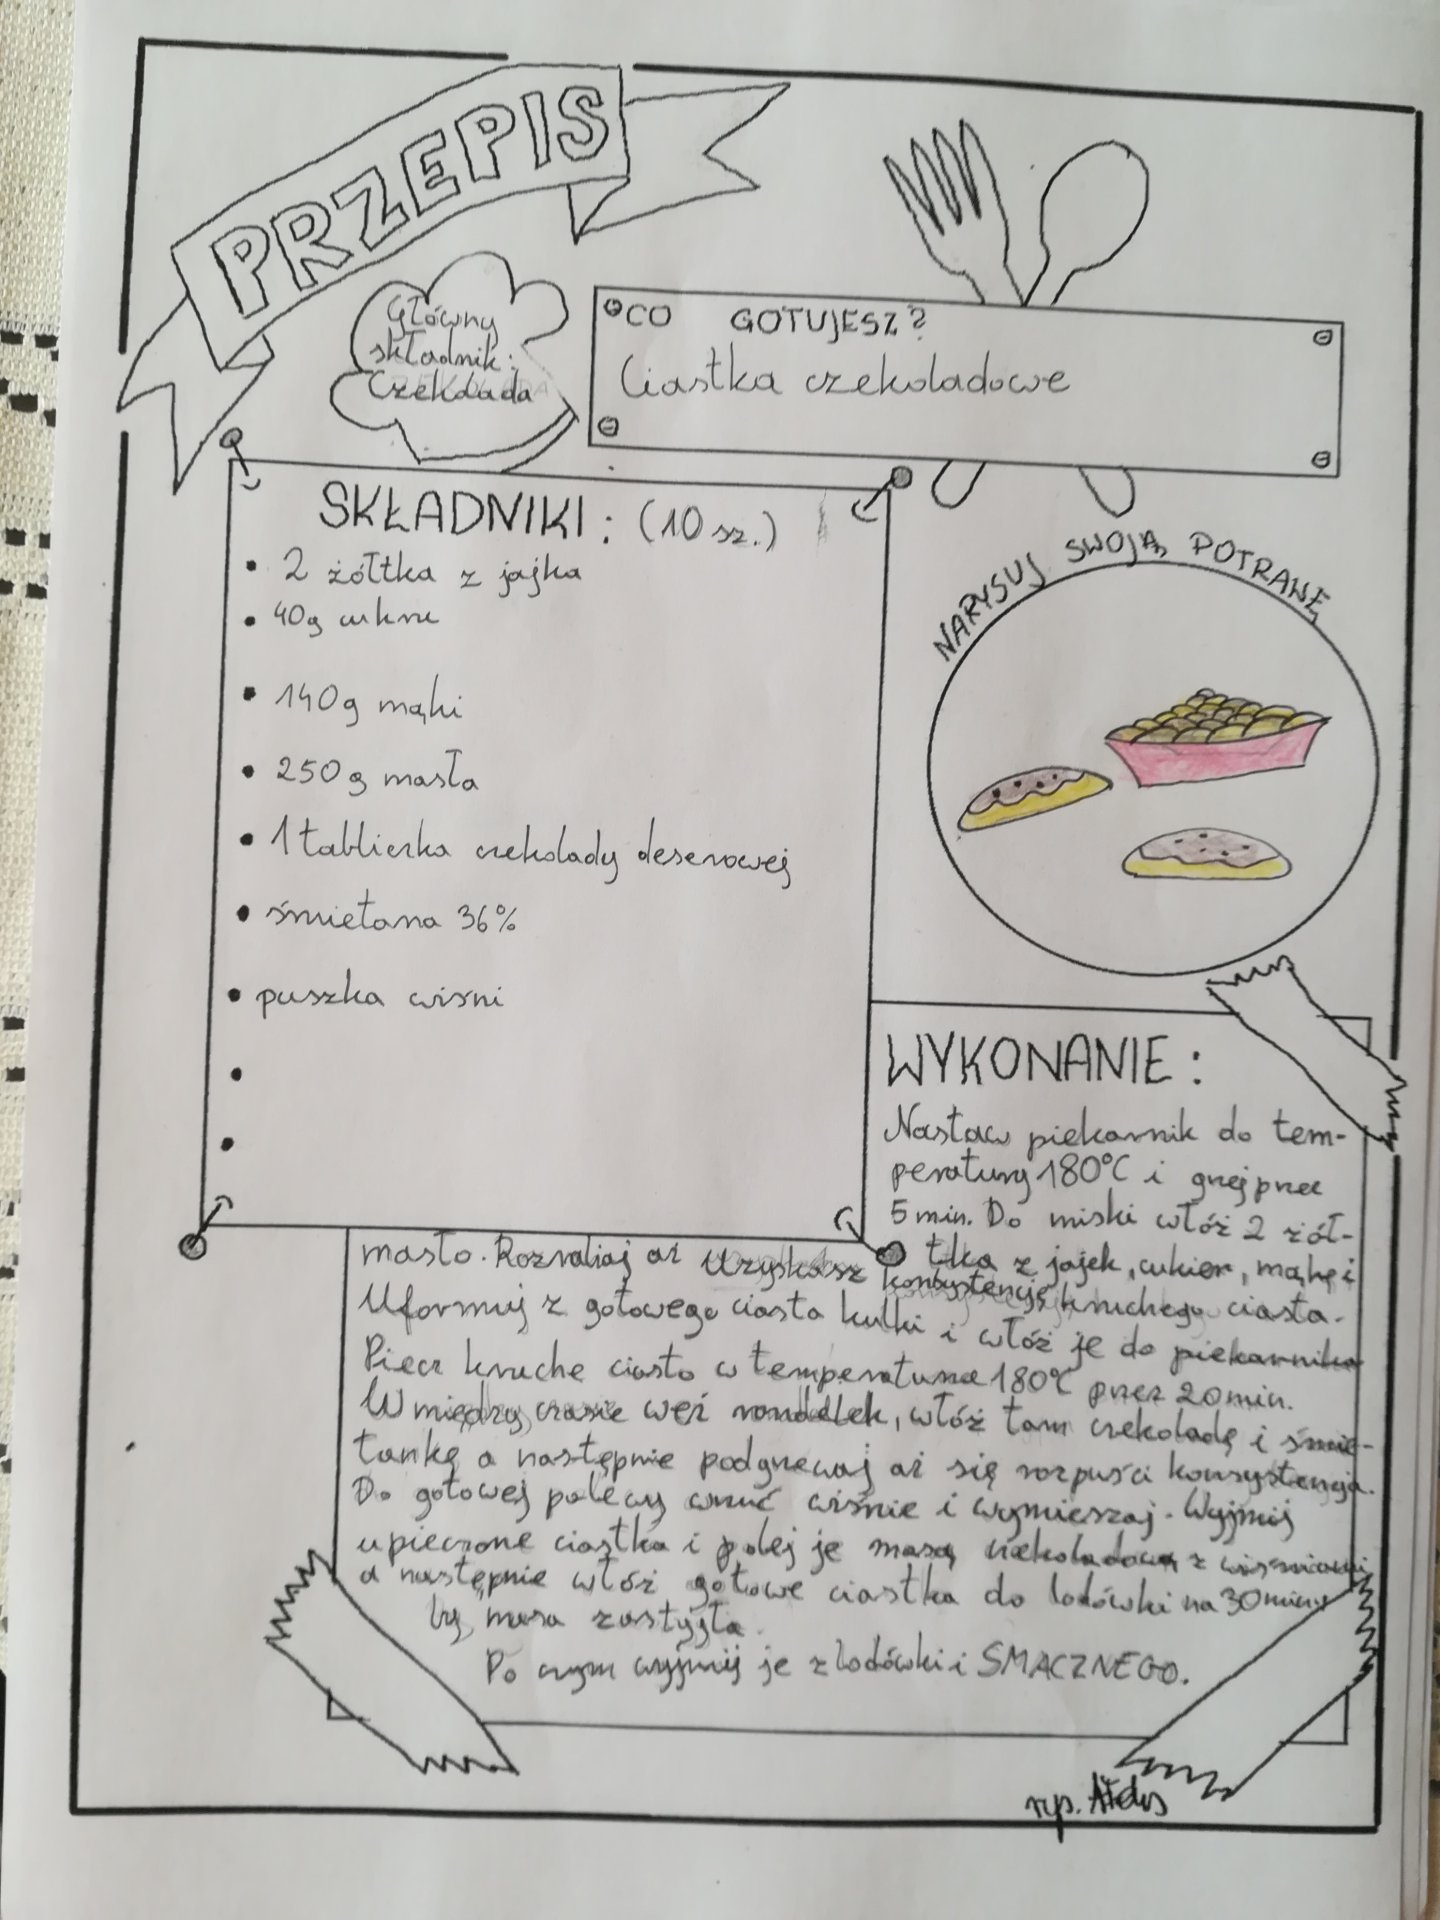 PRZEPIS
Główny
składnik:
Czekolada
CO GOTUJESZ?
Ciastka czekoladowe
SKŁADNIKI: (10 sz.)
• 2 żółtka z jajka
• 40g cukru
• 140g mąki
• 250g masła
• 1 tabliczka czekolady deserowej
• śmietana 36%
• puszka wiśni
NARYSUJ SWOJĄ POTRAWĘ
WYKONANIE:
Nastaw piekarnik do tem-
peratury 180°C i grzej przez
5 min. Do miski włóż 2 żół-
tka z jajek, cukier, mąkę i
masło. Rozrabiaj aż uzyskasz konsystencję kruchego ciasta.
Uformuj z gotowego ciasta kulki i włóż je do piekarnika
Piecz kruche ciasto w temperaturze 180°C przez 20 min.
W między czasie weź rondelek, włóż tam czekoladę i śmie-
tankę a następnie podgrzewaj aż się rozpuści konsystencja.
Do gotowej polewy wrzuć wiśnie i wymieszaj. Wyjmij
upieczone ciastka i polej je masą czekoladową z wiśniami
a następnie włóż gotowe ciastka do lodówki na 30 minut
by masa zastygła.
Po czym wyjmij je z lodówki i SMACZNEGO.
rys.